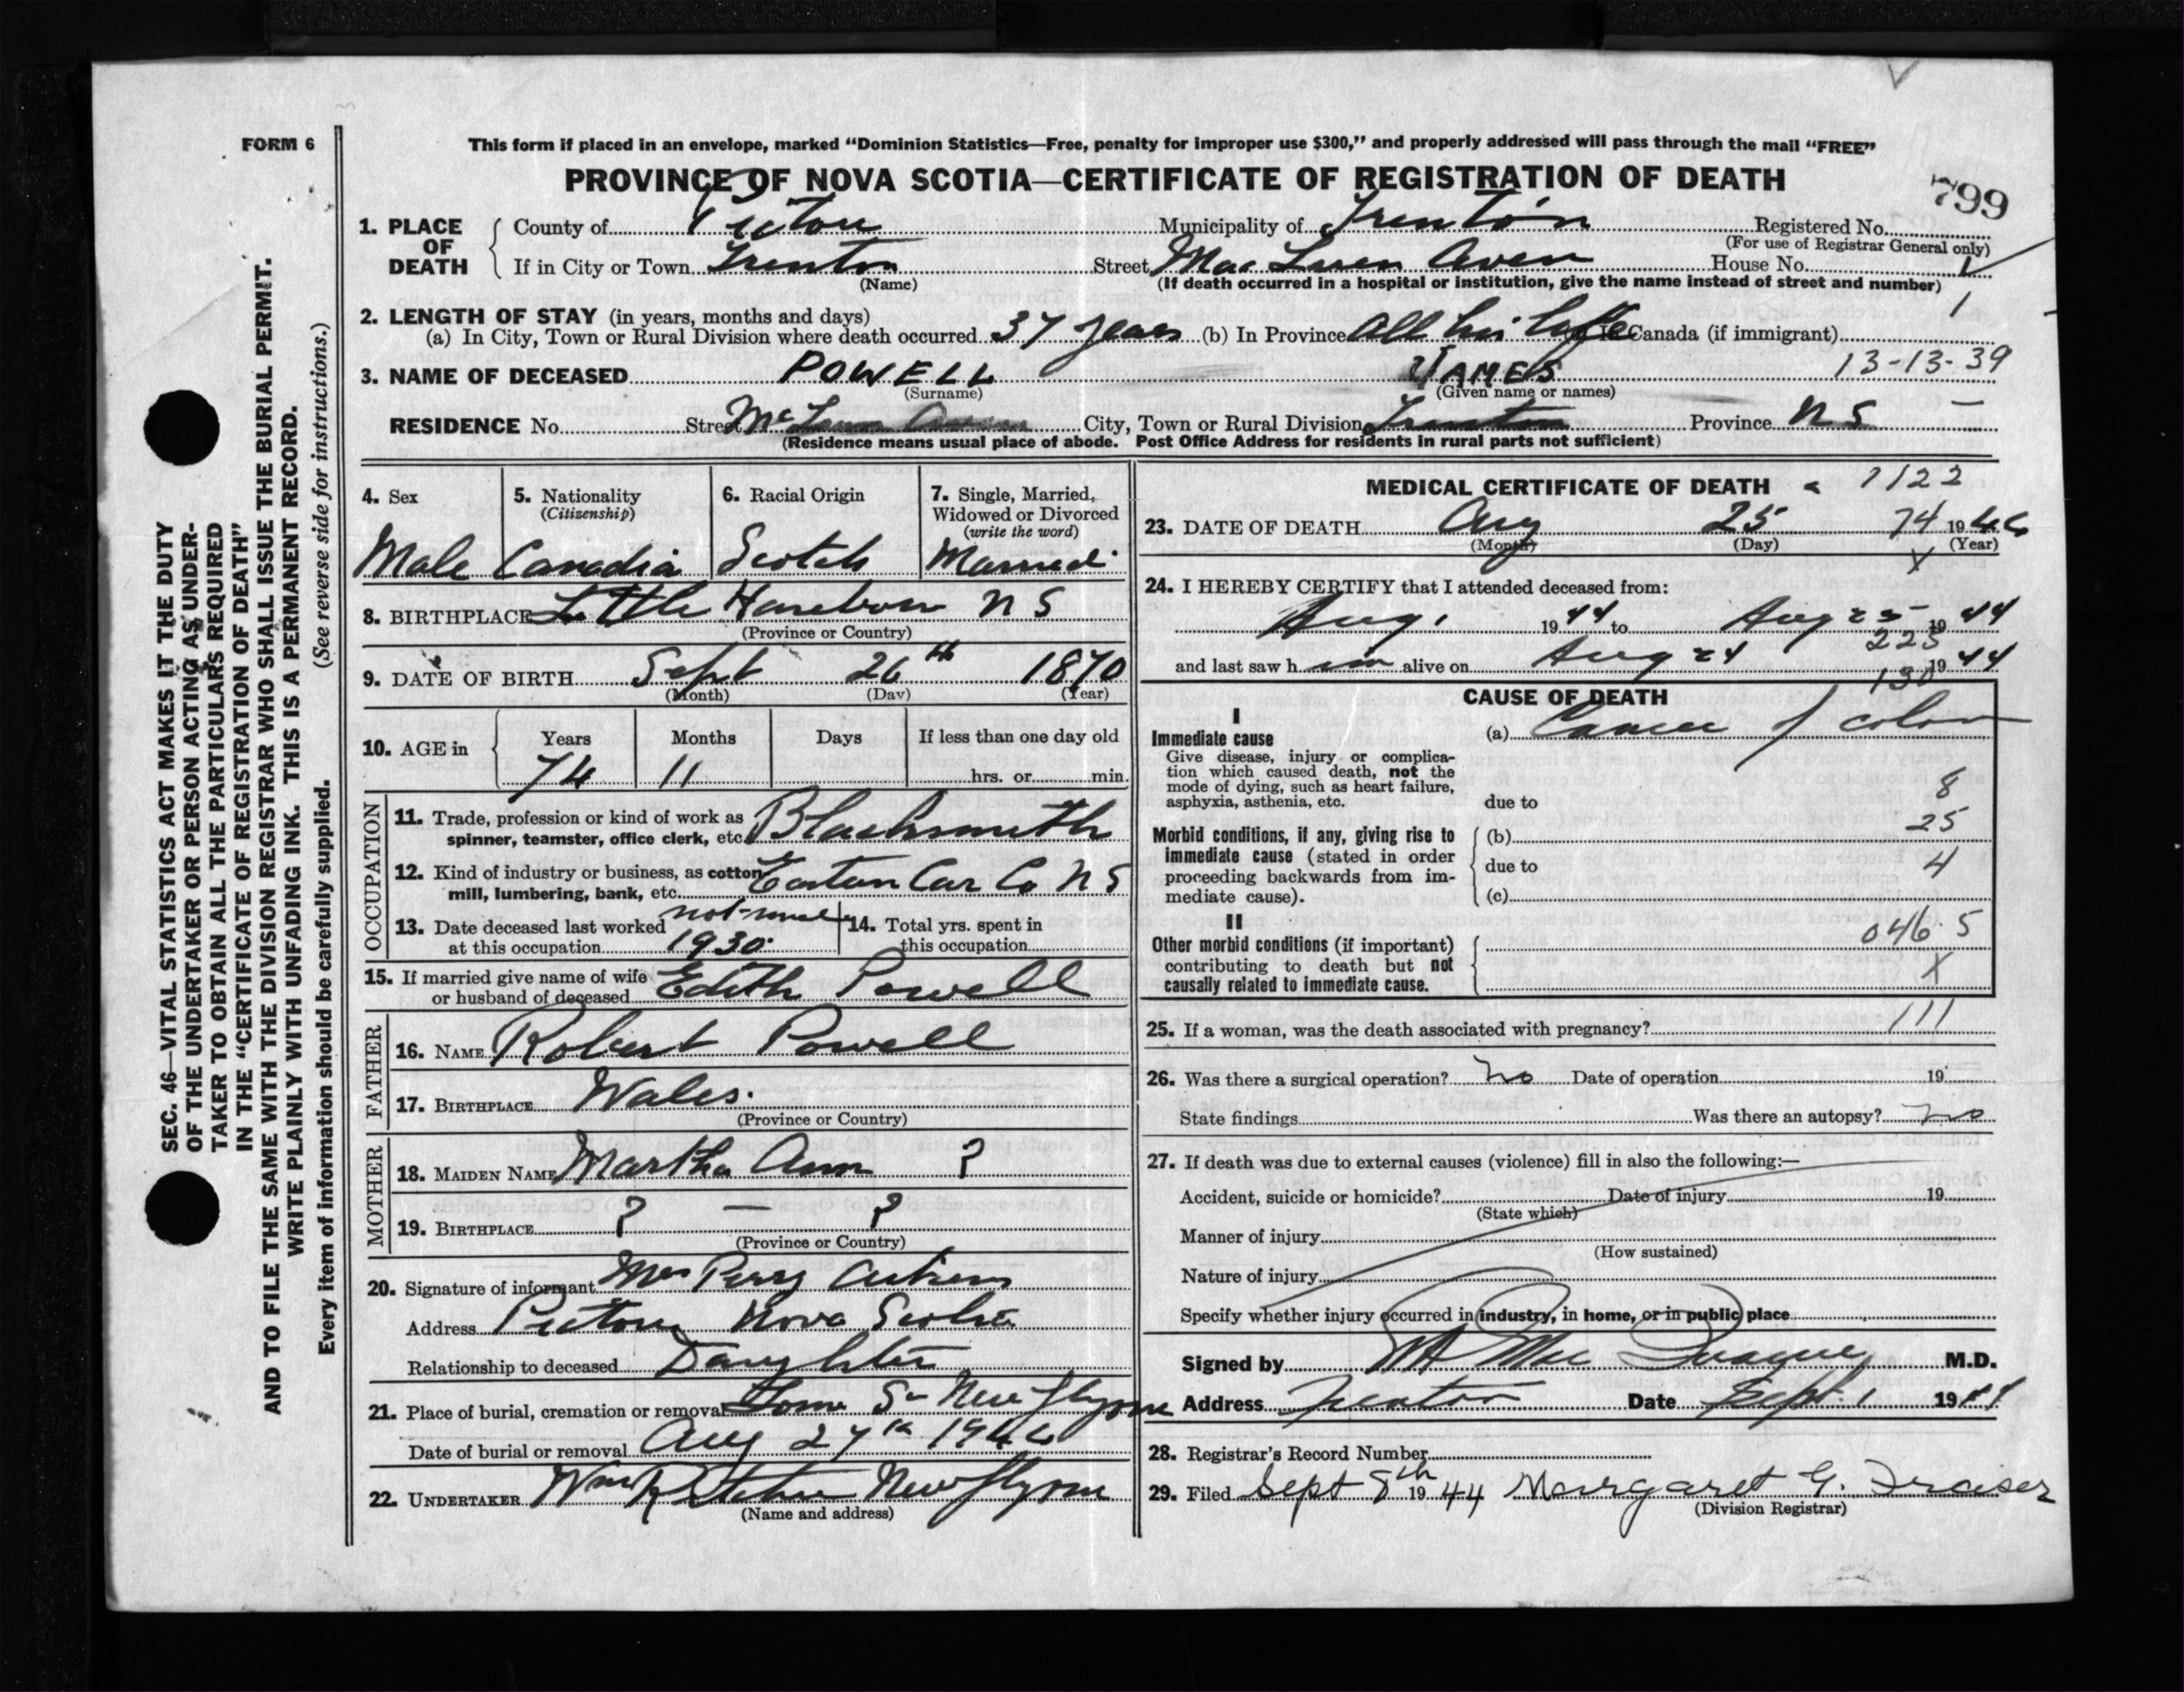 FORM 6
This form if placed in an envelope, marked "Dominion Statistics—Free, penalty for improper use $300," and properly addressed will pass through the mail "FREE"
PROVINCE OF NOVA SCOTIA—CERTIFICATE OF REGISTRATION OF DEATH
799
1. PLACE OF DEATH County of Pictou Municipality of Trenton Registered No.
(For use of Registrar General only)
If in City or Town Trenton Street House No.
(Name) (If death occurred in a hospital or institution, give the name instead of street and number)
1
2. LENGTH OF STAY (in years, months and days)
(a) In City, Town or Rural Division where death occurred 37 years (b) In Province All his life In Canada (if immigrant)
3. NAME OF DECEASED POWELL JAMES 13-13-39
(Surname) (Given name or names)
RESIDENCE No. Street City, Town or Rural Division Trenton Province N S
(Residence means usual place of abode. Post Office Address for residents in rural parts not sufficient)
4. Sex Male
5. Nationality (Citizenship) Canadia
6. Racial Origin Scotch
7. Single, Married, Widowed or Divorced (write the word) Married
8. BIRTHPLACE Little N S
(Province or Country)
9. DATE OF BIRTH Sept 26th 1870
(Month) (Day) (Year)
10. AGE in Years Months Days If less than one day old
74 11 hrs. or min.
OCCUPATION
11. Trade, profession or kind of work as spinner, teamster, office clerk, etc. Blacksmith
12. Kind of industry or business, as cotton mill, lumbering, bank, etc. Car Co N S
13. Date deceased last worked at this occupation 1930
14. Total yrs. spent in this occupation
15. If married give name of wife or husband of deceased Edith Powell
FATHER
16. NAME Robert Powell
17. BIRTHPLACE Wales.
(Province or Country)
MOTHER
18. MAIDEN NAME Martha Ann ?
19. BIRTHPLACE ? — ?
(Province or Country)
20. Signature of informant Mrs Perry
Address Pictou Nova Scotia
Relationship to deceased Daughter
21. Place of burial, cremation or removal New
Date of burial or removal Aug 27th 1944
22. UNDERTAKER Wm R New
(Name and address)
MEDICAL CERTIFICATE OF DEATH 1122
23. DATE OF DEATH Aug 25 74 1944
(Month) (Day) (Year)
X
24. I HEREBY CERTIFY that I attended deceased from:
Aug. 1944 to Aug 25 1944
225
and last saw him alive on Aug 24 1944
130
CAUSE OF DEATH
I
Immediate cause (a) Cancer of colon
Give disease, injury or complication which caused death, not the mode of dying, such as heart failure, asphyxia, asthenia, etc. due to
8
25
Morbid conditions, if any, giving rise to immediate cause (stated in order proceeding backwards from immediate cause). (b)
due to 4
(c)
II
046.5
Other morbid conditions (if important) contributing to death but not causally related to immediate cause.
X
25. If a woman, was the death associated with pregnancy? 111
26. Was there a surgical operation? No Date of operation 19
State findings Was there an autopsy? no
27. If death was due to external causes (violence) fill in also the following:—
Accident, suicide or homicide? Date of injury 19
(State which)
Manner of injury
(How sustained)
Nature of injury
Specify whether injury occurred in industry, in home, or in public place
Signed by M.D.
Address Trenton Date Sept. 1 1944
28. Registrar's Record Number
29. Filed Sept 8th 1944 Margaret G. Fraser
(Division Registrar)
SEC. 46—VITAL STATISTICS ACT MAKES IT THE DUTY
OF THE UNDERTAKER OR PERSON ACTING AS UNDER-
TAKER TO OBTAIN ALL THE PARTICULARS REQUIRED
IN THE "CERTIFICATE OF REGISTRATION OF DEATH"
AND TO FILE THE SAME WITH THE DIVISION REGISTRAR WHO SHALL ISSUE THE BURIAL PERMIT.
WRITE PLAINLY WITH UNFADING INK. THIS IS A PERMANENT RECORD.
Every item of information should be carefully supplied. (See reverse side for instructions.)